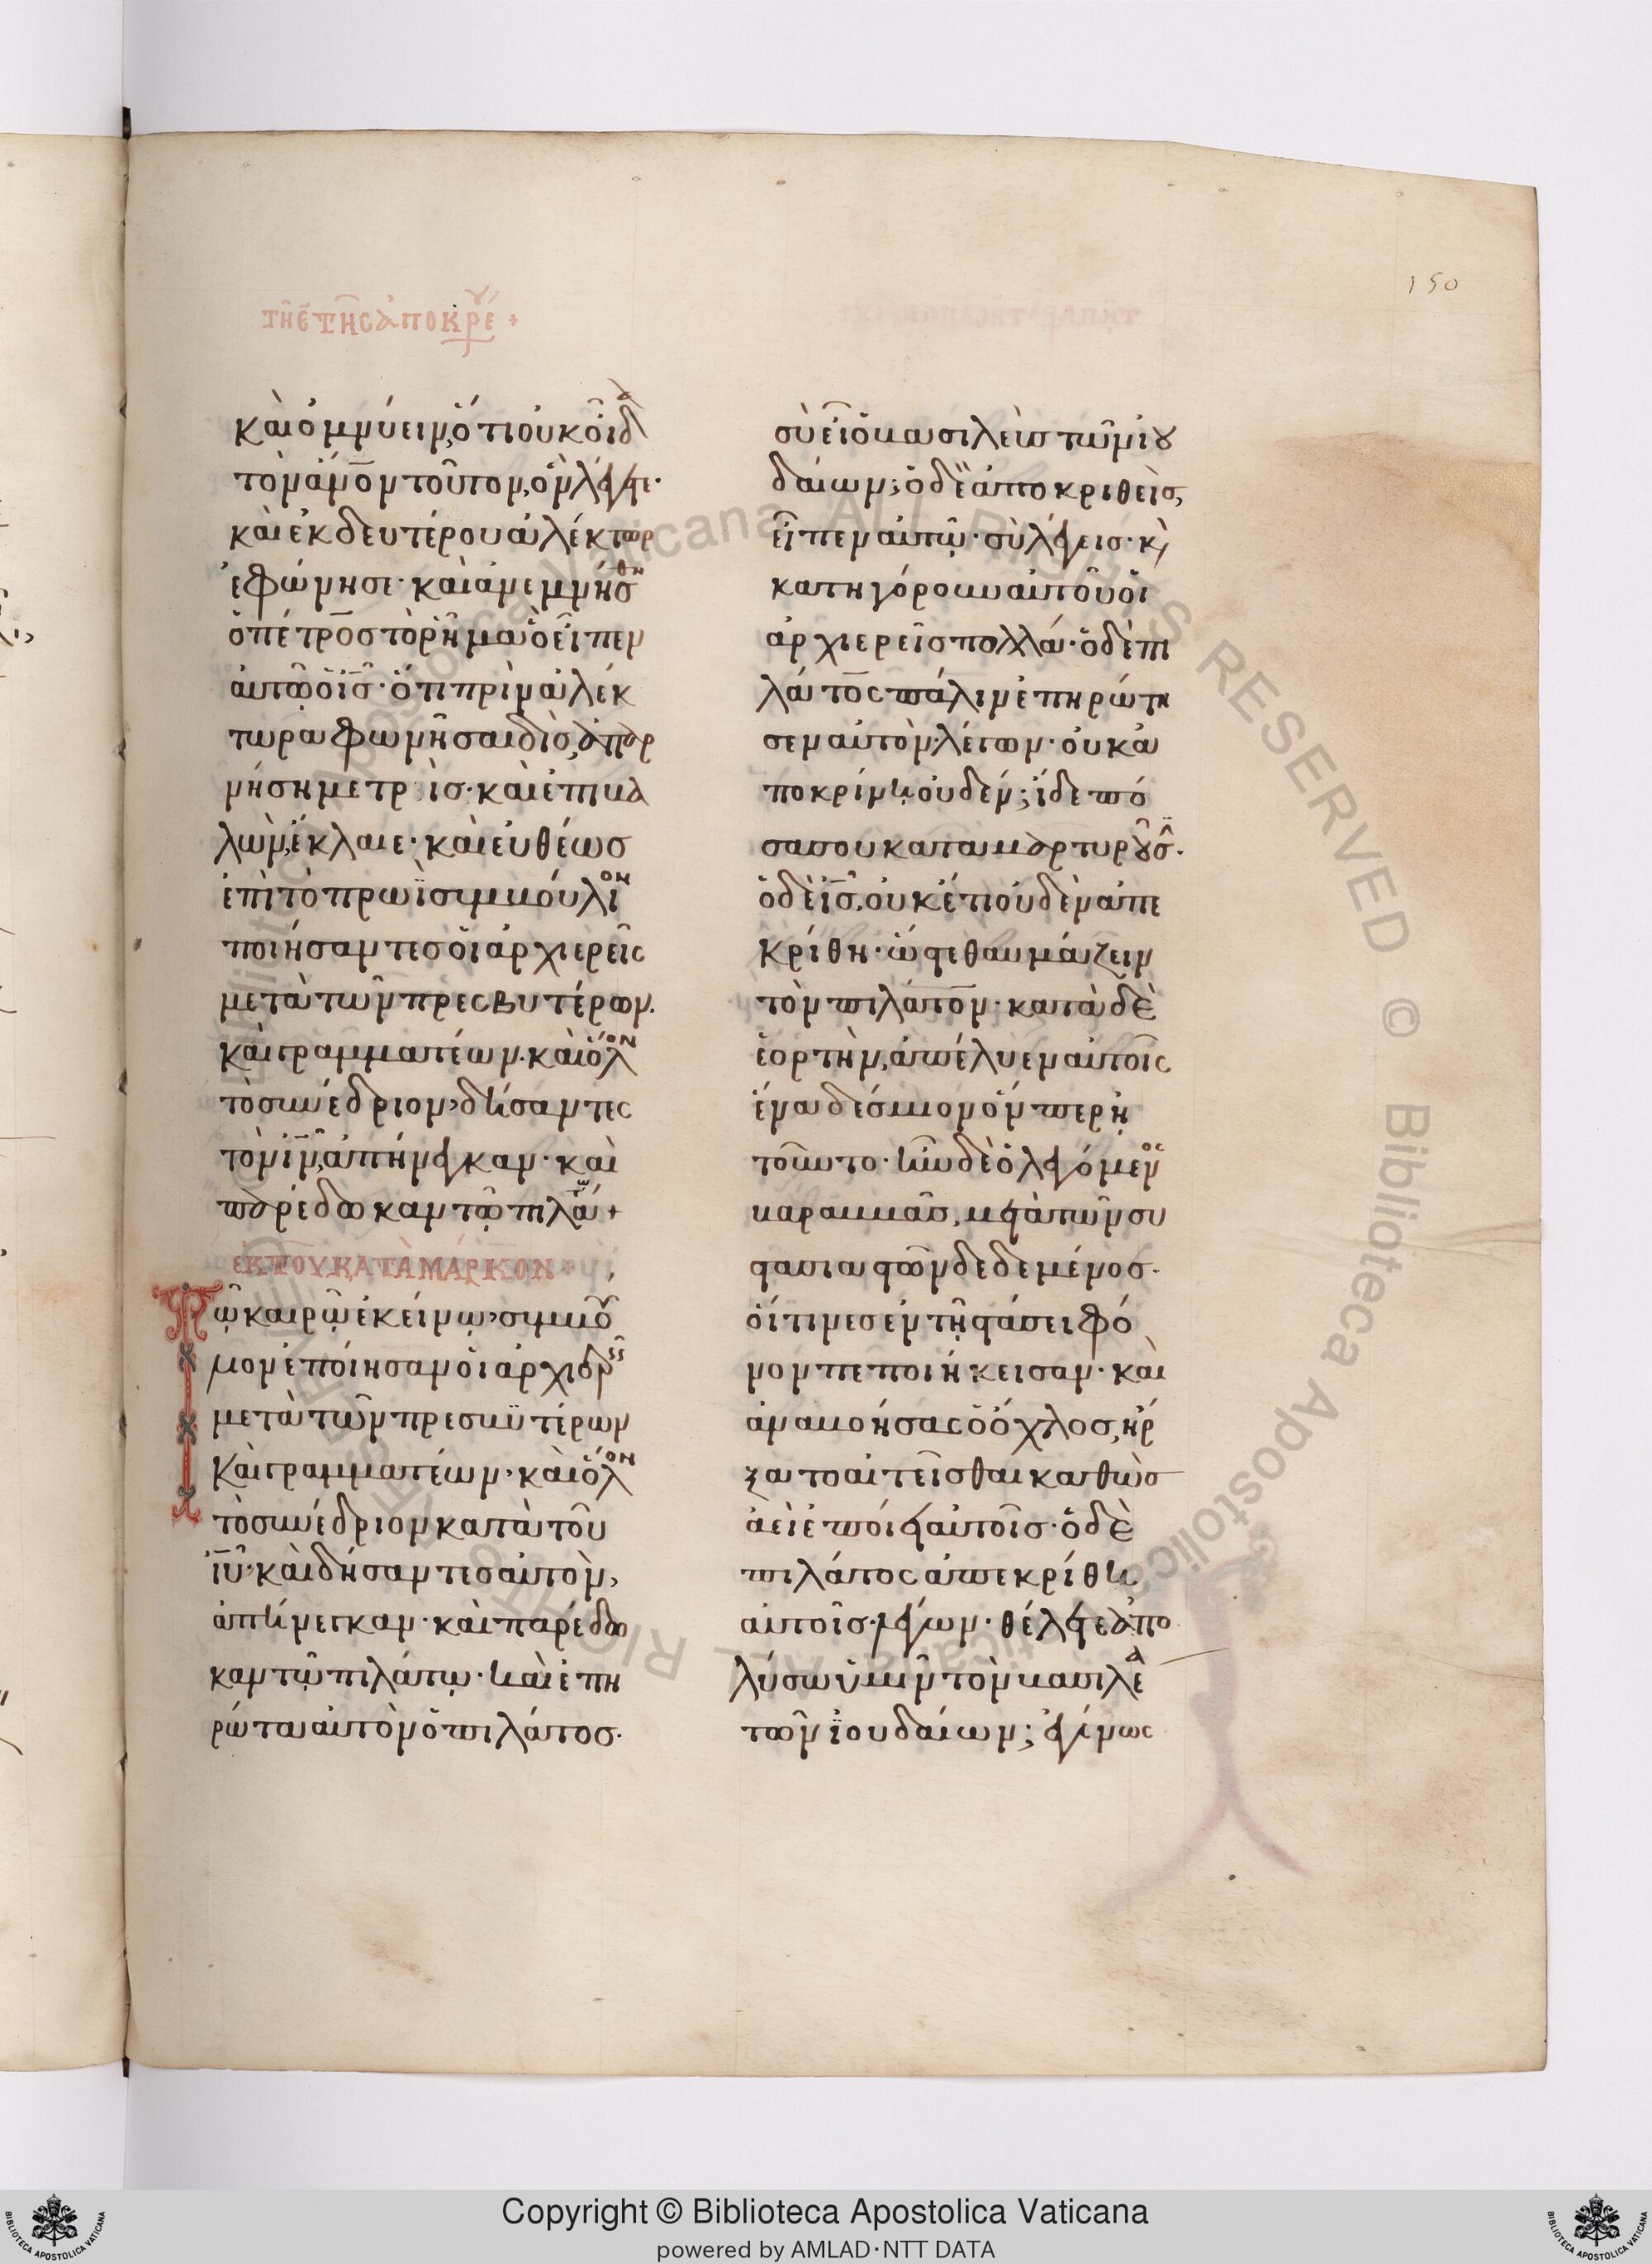 150
τῆ ε̄ τῆς ἀποκρέ +
καὶ ὀμνύειν, ὅτι οὐκ οἶδ
τὸν ἄνον τοῦτον, ὃν λέγετε·
καὶ ἐκ δευτέρου ἀλέκτωρ
ἐφώνησε· καὶ ἀνεμνήσθη
ὁ πέτρος τὸ ῥῆμα ὃ εἶπεν
αὐτῷ ὁ ἰς· ὅτι πρὶν ἀλέκ
τωρα φωνῆσαι δὶς, ἀπαρ
νήση με τρὶς· καὶ ἐπιβα
λὼν, ἔκλαιε· καὶ εὐθέως
ἐπὶ τὸ πρωῒ συμβούλιον
ποιήσαντες οἱ ἀρχιερεῖς
μετὰ τῶν πρεσβυτέρων.
καὶ γραμματέων· καὶ ὅλον
τὸ συνέδριον, δήσαντες
τὸν ἰν, ἀπήνεγκαν· καὶ
παρέδωκαν τῷ πιλά +
ἐκ τοῦ κατὰ μάρκον +
Τῷ καιρῷ ἐκείνω, συμβού
λιον ἐποίησαν οἱ ἀρχιερ
μετὰ τῶν πρεσβυτέρων
καὶ γραμματέων, καὶ ὅλον
τὸ συνέδριον κατὰ τοῦ
ἰυ, καὶ δήσαντες αὐτὸν,
ἀπήνεγκαν· καὶ παρέδω
καν τῷ πιλάτῳ· καὶ ἐπη
ρώτα αὐτὸν ὁ πιλάτος·
σὺ εἶ ὁ βασιλεὺς τῶν ἰου
δαίων; ὁ δὲ ἀποκριθεὶς,
εἶπεν αὐτῷ· σὺ λέγεις· κ
κατηγόρουν αὐτοῦ οἱ
ἀρχιερεῖς πολλά· ὁ δὲ πι
λάτος πάλιν ἐπηρώτη
σεν αὐτὸν λέγων· οὐκ ἀ
ποκρίνη οὐδέν; ἴδε πό
σα σου καταμαρτυροῦσ·
ὁ δὲ ἰς, οὐκέτι οὐδὲν ἀπε
κρίθη· ὥστε θαυμάζειν
τὸν πιλάτον· κατὰ δὲ
ἑορτὴν, ἀπέλυεν αὐτοῖς
ἕνα δέσμιον ὅν περ ἠ
τοῦντο· ἦν δὲ ὁ λεγόμενος
βαραββᾶς, μετὰ τῶν συ
στασιαστῶν δεδεμένος·
οἵτινες ἐν τῇ στάσει φό
νον πεποιήκεισαν· καὶ
ἀναβοήσας ὁ ὄχλος, ἤρ
ξατο αἰτεῖσθαι καθὼς
ἀεὶ ἐποίει αὐτοῖς· ὁ δὲ
πιλάτος ἀπεκρίθη
αὐτοῖς λέγων· θέλετε ἀπο
λύσω ὑμῖν τὸν βασιλέα
τῶν ἰουδαίων; ἐγίνως
Copyright © Biblioteca Apostolica Vaticana
powered by AMLAD·NTT DATA